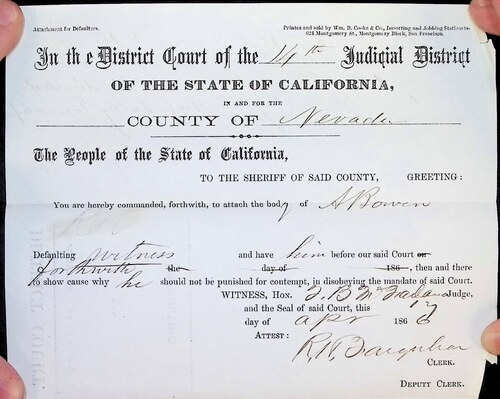 Attachment for Defaulters.
Printed and sold by Wm. B. Cooke & Co., Importing and Jobbing Stationers,
624 Montgomery St., Montgomery Block, San Francisco.
In the District Court of the 14th Judicial District
OF THE STATE OF CALIFORNIA,
IN AND FOR THE
COUNTY OF Nevada
The People of the State of California,
TO THE SHERIFF OF SAID COUNTY, GREETING:
You are hereby commanded, forthwith, to attach the body of A Bowen
Defaulting witness and have him before our said Court on
forthwith the day of 186 , then and there
to show cause why he should not be punished for contempt, in disobeying the mandate of said Court.
WITNESS, Hon. T. B. McFarland Judge,
and the Seal of said Court, this 17
day of Apr 1866
ATTEST:
R. H. Farquhar
CLERK.
DEPUTY CLERK.